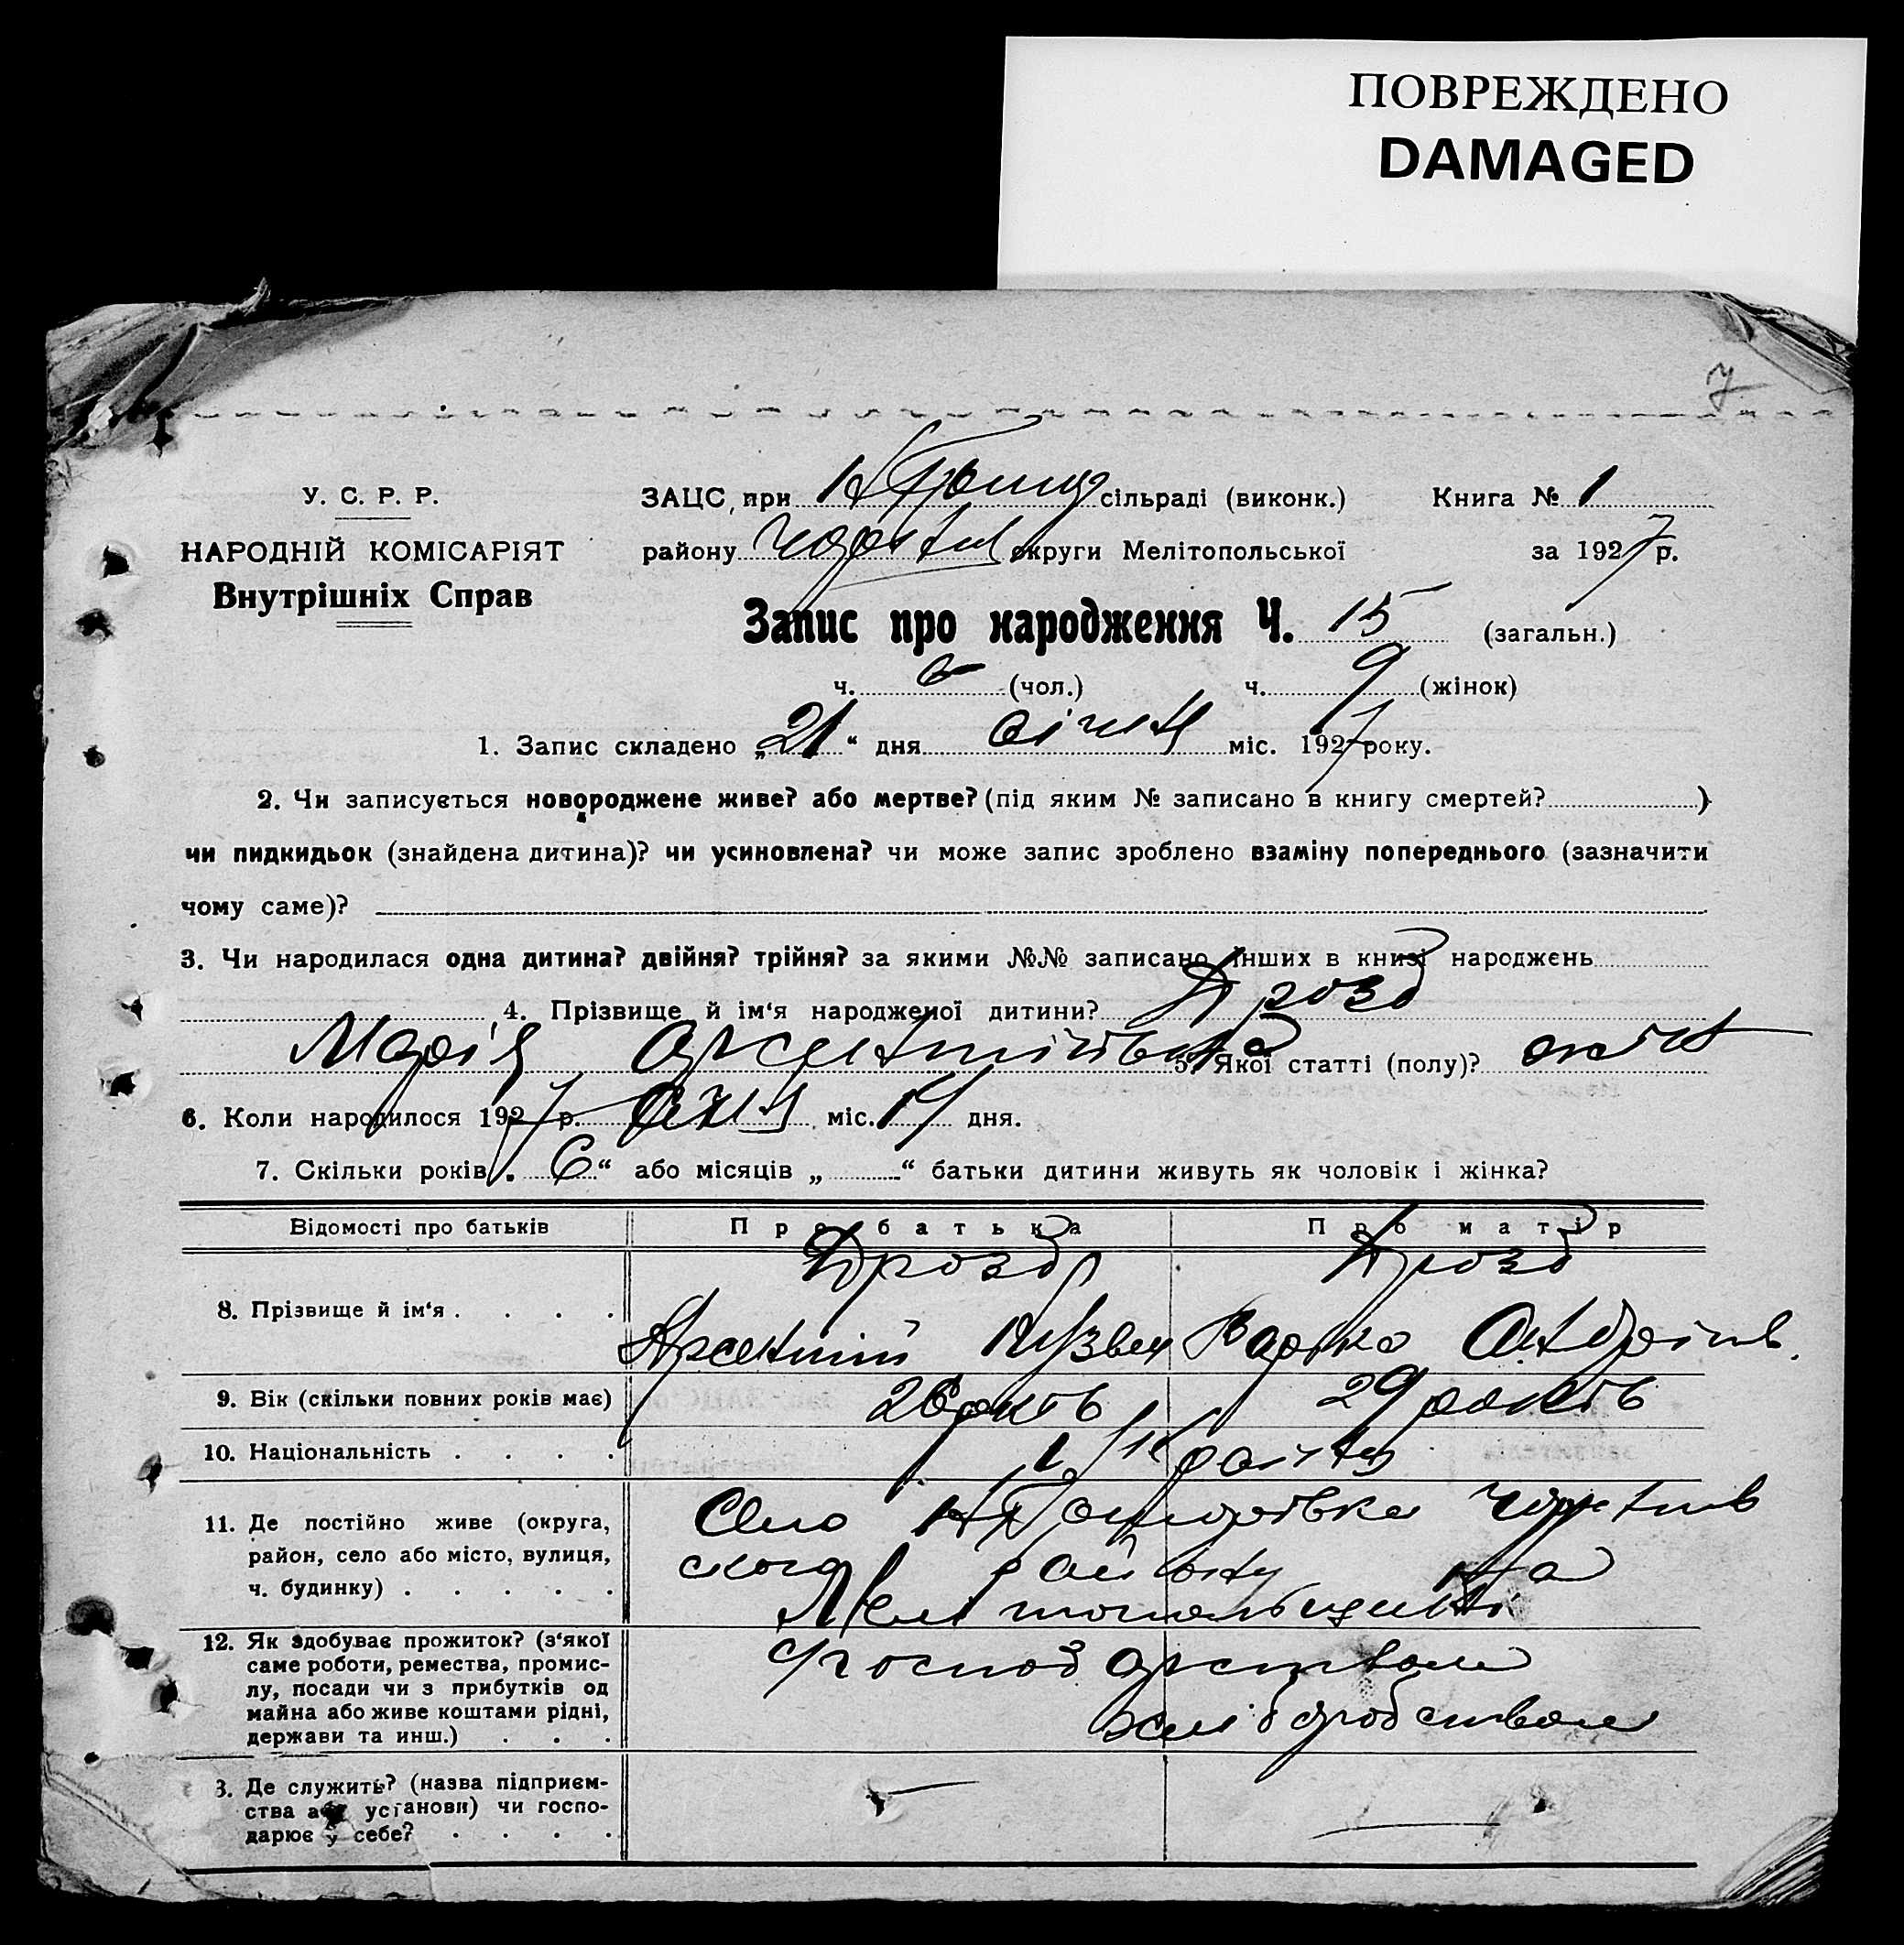 ПОВРЕЖДЕНО
DAMAGED
7
У. С. Р. Р.
НАРОДНІЙ КОМІСАРІЯТ
Внутрішніх Справ
ЗАЦС при сільраді (виконк.) Книга № 1
району округи Мелітопольської за 1927 р.
Запис про народження Ч. 15 (загальн.)
ч. 6 (чол.) ч. 9 (жінок)
1. Запис складено „21“ дня січня міс. 1927 року.
2. Чи записується новороджене живе? або мертве? (під яким № записано в книгу смертей? )
чи пидкидьок (знайдена дитина)? чи усиновлена? чи може запис зроблено взаміну попереднього (зазначити
чому саме)?
3. Чи народилася одна дитина? двійня? трійня? за якими №№ записано інших в книзі народжень
4. Прізвище й ім‘я народженої дитини? Дрозд
Марія Арсентіївна 5. Якої статті (полу)? жін
6. Коли народилося 1927 р. січня міс. дня.
7. Скільки років „6“ або місяців „ “ батьки дитини живуть як чоловік і жінка?
Відомості про батьків Про батька Про матір
8. Прізвище й ім‘я . . . . Дрозд Дрозд
Арсентій Кузьм Варка Андріів.
9. Вік (скільки повних років має) 26 років 29 років
10. Національність . . . . Українці
11. Де постійно живе (округа,
район, село або місто, вулиця,
ч. будинку) . . . . .
Село
ського району на
Мелітопольщині
12. Як здобуває прожиток? (з‘якої
саме роботи, ремества, промис-
лу, посади чи з прибутків од
майна або живе коштами рідні,
держави та инш.) . . .
господарством
хліборобством
3. Де служить? (назва підприєм-
ства або установи) чи госпо-
дарює у себе? . . . .